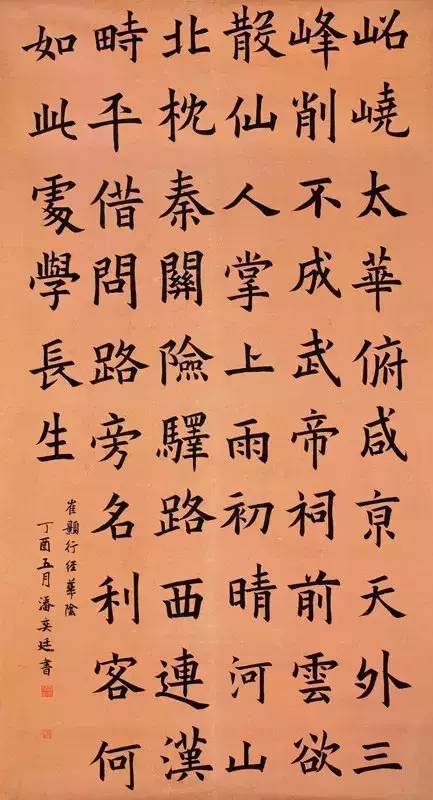 岹嶢太華俯咸亰天外三
峰削不成武帝祠前雲欲
散仙人掌上雨初晴河山
北枕秦關險驛路西連漢
畤平借問路旁名利客何
如此處學長生
崔顥行经華陰
丁酉五月潘奕廷書